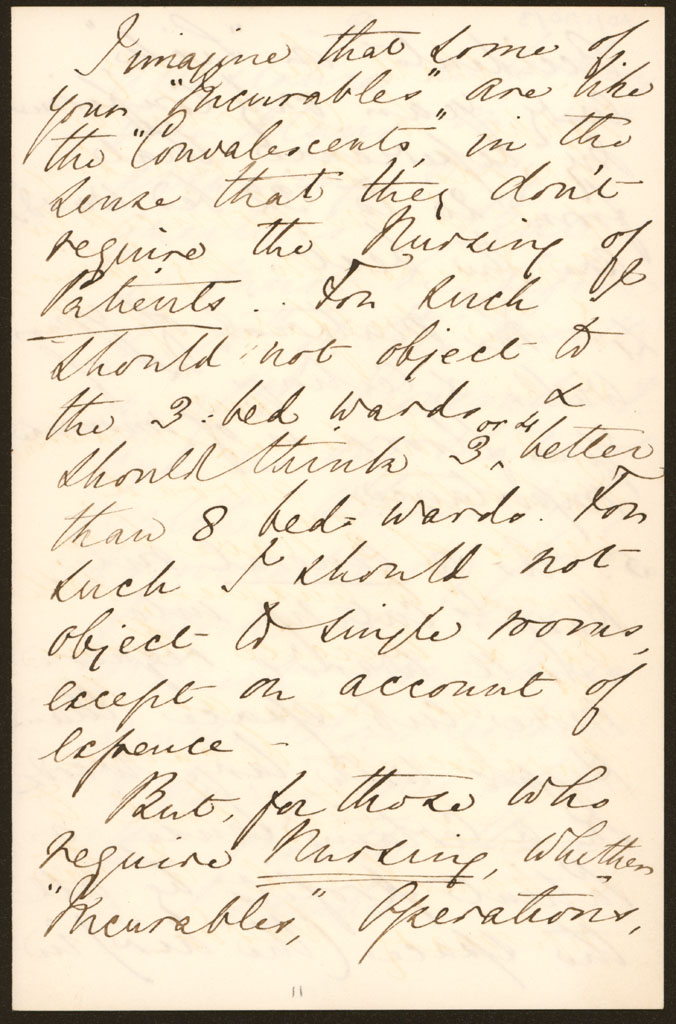 I imagine that some of
your "Incurables" are like
the "Convalescents," in the
sense that they don't
require the Nursing of
Patients.. For such I
should not object to
the 3-bed wards, &
should think 3 or 4 better
than 8 bed-wards. For
such I should not
object to single rooms,
except on account of
expence -
But, for those who
require Nursing, whether
"Incurables," Operations,
11